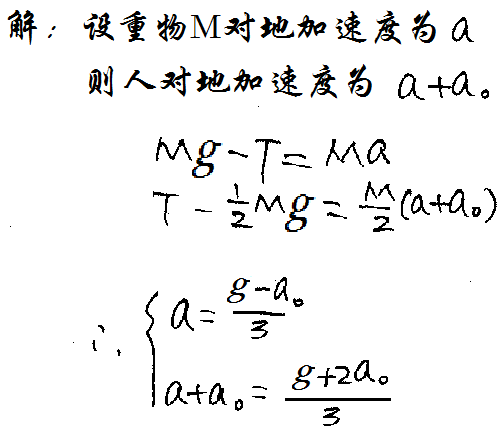 解：设重物M对地加速度为 a
则人对地加速度为 a+a₀
Mg-T=Ma
T-½Mg=M/2(a+a₀)
∴ { a=(g-a₀)/3
a+a₀=(g+2a₀)/3